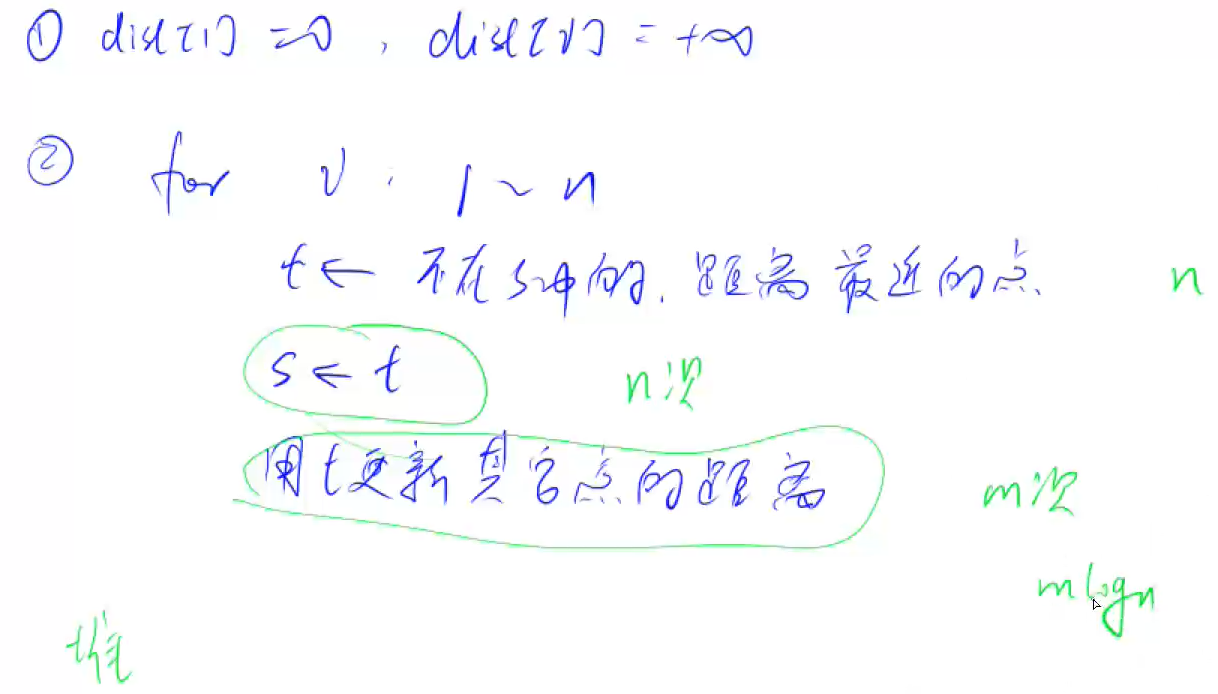 ① dist[1] = 0, dist[v] = +∞
② for v: 1 ~ n
t ← 不在s中的, 距离最近的点 n
s ← t n次
用t更新其它点的距离 m次
mlogn
堆